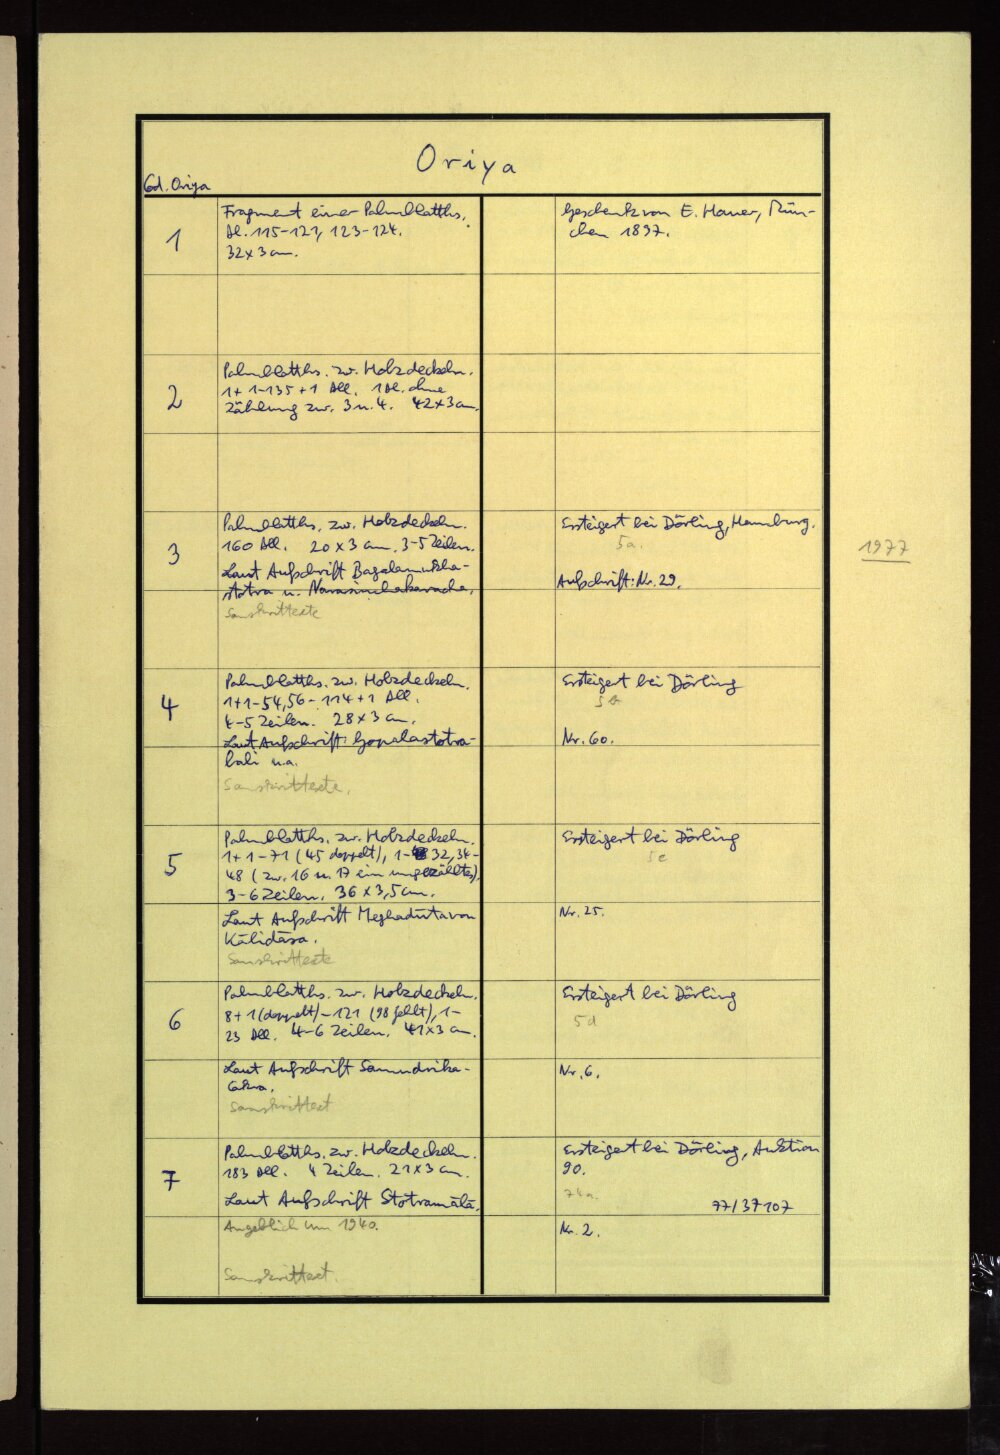 Oriya
Cod. Oriya
1
Fragment einer Palmblatths.
Bl. 115-121, 123-124.
32 x 3 cm.
Geschenk von E. Hauer, Mün-
chen 1897.
2
Palmblatths. zw. Holzdeckeln.
1 + 1-135 + 1 Bll. 1 Bl. ohne
Zählung zw. 3 u. 4. 42 x 3 cm.
3
Palmblatths. zw. Holzdeckeln.
160 Bll. 20 x 3 cm. 3-5 Zeilen.
Laut Aufschrift Bagalamukha-
stotra u. Narasimhakavacha.
Sanskrittexte
Ersteigert bei Dörling, Hamburg.
5a.
Aufschrift: Nr. 29.
1977
4
Palmblatths. zw. Holzdeckeln.
1 + 1-54, 56-114 + 1 Bll.
4-5 Zeilen. 28 x 3 cm.
Laut Aufschrift: Gopalastotra-
bali u.a.
Sanskrittexte.
Ersteigert bei Dörling
5b
Nr. 60.
5
Palmblatths. zw. Holzdeckeln.
1 + 1-71 (45 doppelt), 1-32, 34-
48 (zw. 16 u. 17 ein ungezähltes)
3-6 Zeilen. 36 x 3,5 cm.
Laut Aufschrift Meghadūta von
Kālidāsa.
Sanskrittexte
Ersteigert bei Dörling
5c
Nr. 25.
6
Palmblatths. zw. Holzdeckeln.
8 + 1 (doppelt) - 121 (98 fehlt), 1-
23 Bll. 4-6 Zeilen. 41 x 3 cm.
Laut Aufschrift Samudrika-
Sanskrittext
Ersteigert bei Dörling
5d
Nr. 6.
7
Palmblatths. zw. Holzdeckeln.
183 Bll. 4 Zeilen. 21 x 3 cm.
Laut Aufschrift Stotramālā.
Angeblich um 1940.
Sanskrittext.
Ersteigert bei Dörling, Auktion
90.
74a.
77/37107
Nr. 2.